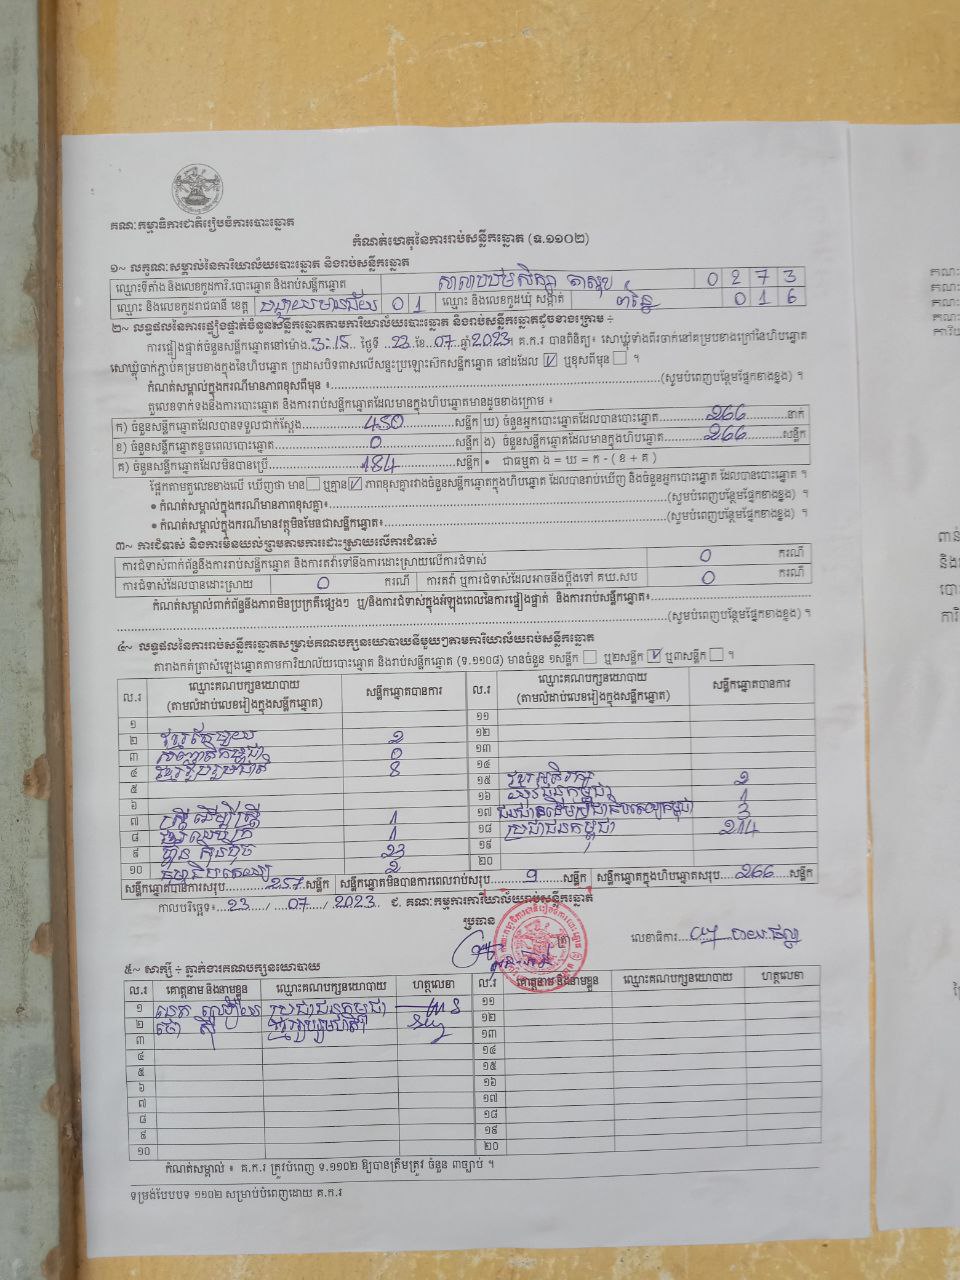 គណៈកម្មាធិការជាតិរៀបចំការបោះឆ្នោត
កំណត់ហេតុនៃការរាប់សន្លឹកឆ្នោត (ទ.១១០២)
១~ លក្ខណៈសម្គាល់នៃការិយាល័យបោះឆ្នោត និងរាប់សន្លឹកឆ្នោត
ឈ្មោះទីតាំង និងលេខកូដការិ.បោះឆ្នោត និងរាប់សន្លឹកឆ្នោត សាលាបឋមសិក្សា 0 2 7 3
ឈ្មោះ និងលេខកូដរាជធានី ខេត្ត បន្ទាយមានជ័យ 0 1 ឈ្មោះ និងលេខកូដឃុំ សង្កាត់ 0 1 6
២~ លទ្ធផលនៃការផ្ទៀងផ្ទាត់ចំនួនសន្លឹកឆ្នោតតាមការិយាល័យបោះឆ្នោត និងរាប់សន្លឹកឆ្នោតដូចខាងក្រោម ÷
ការផ្ទៀងផ្ទាត់ចំនួនសន្លឹកឆ្នោតនៅម៉ោង 3:15 ថ្ងៃទី 23 ខែ 07 ឆ្នាំ 2023 គ.ក.រ បានពិនិត្យ៖ សោឃ្លុំទាំងពីរចាក់នៅគម្របខាងក្រៅនៃហិបឆ្នោត
សោឃ្លុំចាក់ភ្ជាប់គម្របខាងក្នុងនៃហិបឆ្នោត ក្រដាសបិទពាសលើសន្ទះប្រឡោះស៊កសន្លឹកឆ្នោត នៅដដែល ☑ ឬខុសពីមុន ☐ ។
កំណត់សម្គាល់ក្នុងករណីមានភាពខុសពីមុន ៖ (សូមបំពេញបន្ថែមផ្នែកខាងខ្នង) ។
តួលេខទាក់ទងនឹងការបោះឆ្នោត និងការរាប់សន្លឹកឆ្នោតដែលមានក្នុងហិបឆ្នោតមានដូចខាងក្រោម ៖
ក) ចំនួនសន្លឹកឆ្នោតដែលបានទទួលជាក់ស្តែង 450 សន្លឹក ឃ) ចំនួនអ្នកបោះឆ្នោតដែលបានបោះឆ្នោត 266 នាក់
ខ) ចំនួនសន្លឹកឆ្នោតខូចពេលបោះឆ្នោត 0 សន្លឹក ង) ចំនួនសន្លឹកឆ្នោតដែលមានក្នុងហិបឆ្នោត 266 សន្លឹក
គ) ចំនួនសន្លឹកឆ្នោតដែលមិនបានប្រើ 184 សន្លឹក • ជាធម្មតា ង = ឃ = ក - ( ខ + គ )
ផ្អែកតាមតួលេខខាងលើ ឃើញថា មាន ☐ ឬគ្មាន ☑ ភាពខុសគ្នារវាងចំនួនសន្លឹកឆ្នោតក្នុងហិបឆ្នោត ដែលបានរាប់ឃើញ និងចំនួនអ្នកបោះឆ្នោត ដែលបានបោះឆ្នោត ។
• កំណត់សម្គាល់ក្នុងករណីមានភាពខុសគ្នា៖ (សូមបំពេញបន្ថែមផ្នែកខាងខ្នង) ។
• កំណត់សម្គាល់ក្នុងករណីមានវត្ថុមិនមែនជាសន្លឹកឆ្នោត៖ (សូមបំពេញបន្ថែមផ្នែកខាងខ្នង) ។
៣~ ការជំទាស់ និងការមិនយល់ព្រមតាមការដោះស្រាយលើការជំទាស់
ការជំទាស់ពាក់ព័ន្ធនឹងការរាប់សន្លឹកឆ្នោត និងការតវ៉ាទៅនឹងការដោះស្រាយលើការជំទាស់ 0 ករណី
ការជំទាស់ដែលបានដោះស្រាយ 0 ករណី ការតវ៉ា ឬការជំទាស់ដែលអាចនឹងប្តឹងទៅ គឃ.សប 0 ករណី
កំណត់សម្គាល់ពាក់ព័ន្ធនឹងភាពមិនប្រក្រតីផ្សេងៗ ឬ/និងការជំទាស់ក្នុងអំឡុងពេលនៃការផ្ទៀងផ្ទាត់ និងការរាប់សន្លឹកឆ្នោត៖
(សូមបំពេញបន្ថែមផ្នែកខាងខ្នង) ។
៤~ លទ្ធផលនៃការរាប់សន្លឹកឆ្នោតសម្រាប់គណបក្សនយោបាយនីមួយៗតាមការិយាល័យរាប់សន្លឹកឆ្នោត
តារាងកត់ត្រាសំឡេងឆ្នោតតាមការិយាល័យបោះឆ្នោត និងរាប់សន្លឹកឆ្នោត (ទ.១១០៨) មានចំនួន ១សន្លឹក ☐ ឬ២សន្លឹក ☑ ឬ៣សន្លឹក ☐ ។
ល.រ ឈ្មោះគណបក្សនយោបាយ (តាមលំដាប់លេខរៀងក្នុងសន្លឹកឆ្នោត) សន្លឹកឆ្នោតបានការ ល.រ ឈ្មោះគណបក្សនយោបាយ (តាមលំដាប់លេខរៀងក្នុងសន្លឹកឆ្នោត) សន្លឹកឆ្នោតបានការ
១ ១១
២ 2 ១២
៣ 0 ១៣
៤ 8 ១៤
៥ ១៥ 2
៦ ១៦ 1
៧ ស្ត្រីដើម្បីស្ត្រី 1 ១៧ 3
៨ 1 ១៨ ប្រជាជនកម្ពុជា 214
៩ ហ្វ៊ុនស៊ិនប៉ិច 23 ១៩
១០ 2 ២០
សន្លឹកឆ្នោតបានការសរុប 257 សន្លឹក សន្លឹកឆ្នោតមិនបានការពេលរាប់សរុប 9 សន្លឹក សន្លឹកឆ្នោតក្នុងហិបឆ្នោតសរុប 266 សន្លឹក
កាលបរិច្ឆេទ៖ 23 / 07 / 2023 ជ. គណៈកម្មការការិយាល័យរាប់សន្លឹកឆ្នោត
ប្រធាន
លេខាធិការ
៥~ សាក្សី ÷ ភ្នាក់ងារគណបក្សនយោបាយ
ល.រ គោត្តនាម និងនាមខ្លួន ឈ្មោះគណបក្សនយោបាយ ហត្ថលេខា ល.រ គោត្តនាម និងនាមខ្លួន ឈ្មោះគណបក្សនយោបាយ ហត្ថលេខា
១ ប្រជាជនកម្ពុជា ១១
២ ១២
៣ ១៣
៤ ១៤
៥ ១៥
៦ ១៦
៧ ១៧
៨ ១៨
៩ ១៩
១០ ២០
កំណត់សម្គាល់ ៖ គ.ក.រ ត្រូវបំពេញ ទ.១១០២ ឱ្យបានត្រឹមត្រូវ ចំនួន ៣ច្បាប់ ។
ទម្រង់បែបបទ ១១០២ សម្រាប់បំពេញដោយ គ.ក.រ